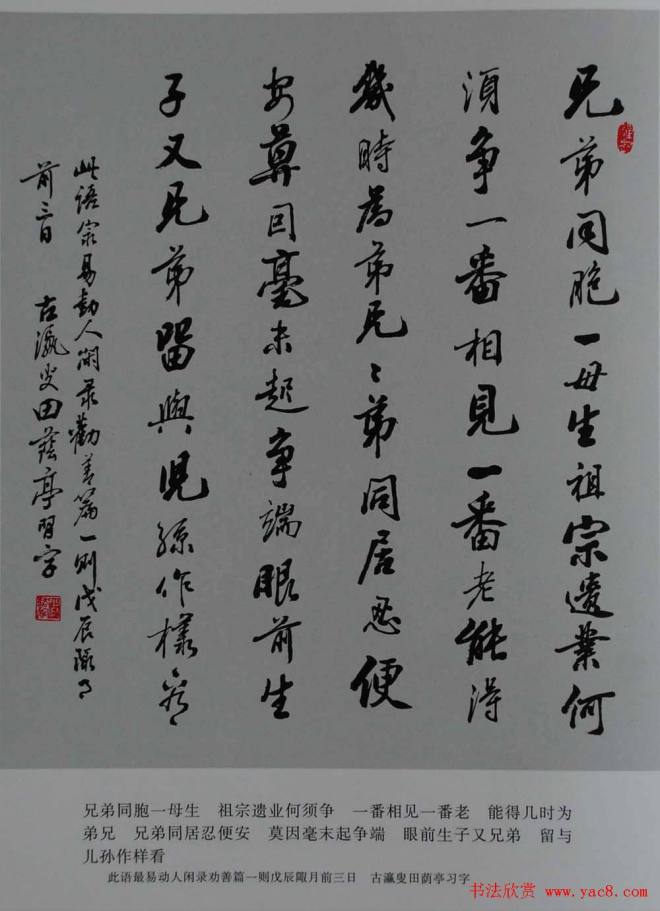 兄弟同胞一毋生祖宗遗業何
須争一番相見一番老能得
幾時為弟兄兄弟同居忍便
安莫因毫末起争端眼前生
子又兄弟留與兒孫作樣看
此語最易動人閑录勸善篇一則戊辰陬月
前三日 古瀛叟田蔭亭習字
兄弟同胞一母生 祖宗遗业何须争 一番相见一番老 能得几时为
弟兄 兄弟同居忍便安 莫因毫末起争端 眼前生子又兄弟 留与
儿孙作样看
此语最易动人闲录劝善篇一则戊辰陬月前三日 古瀛叟田荫亭习字
书法欣赏
www.yac8.com